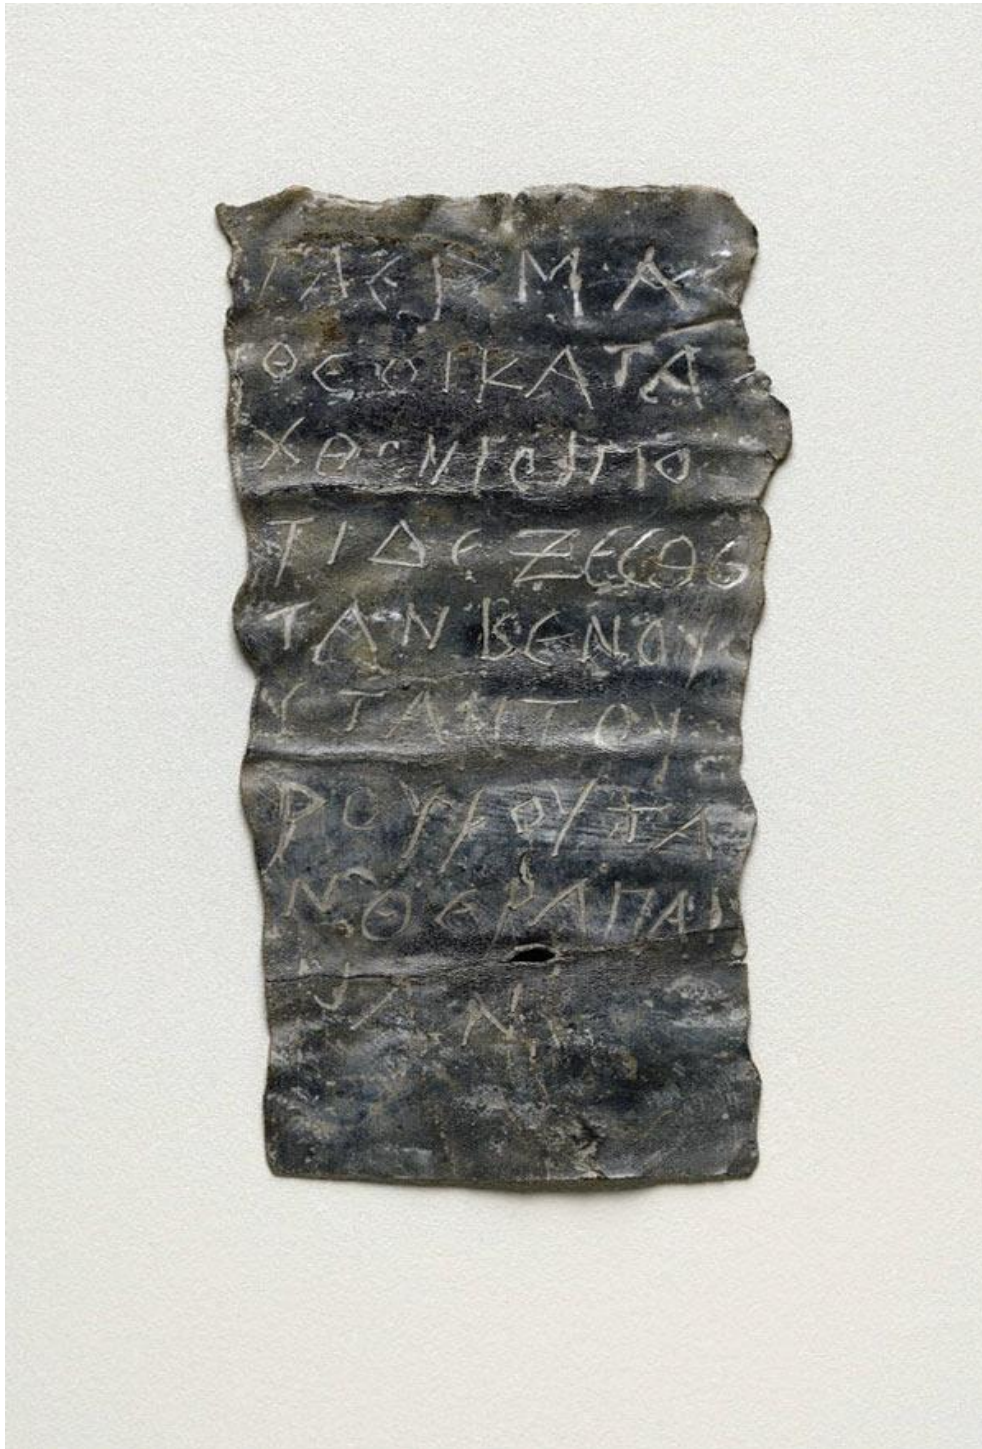 ΓΑΕΡΜΑ
ΘΕΟΙΚΑΤΑ
ΧΘΟΝΙΟΙΠΟ
ΤΙΔΕΖΕϹΘΕ
ΤΑΝΒΕΝΟΥ
ΥΤΑΝΤΟΥ
ΡΟΥΦΟΥΤΑ
ΝΘΕΡΑΠΑΙ
ΝΑΝ